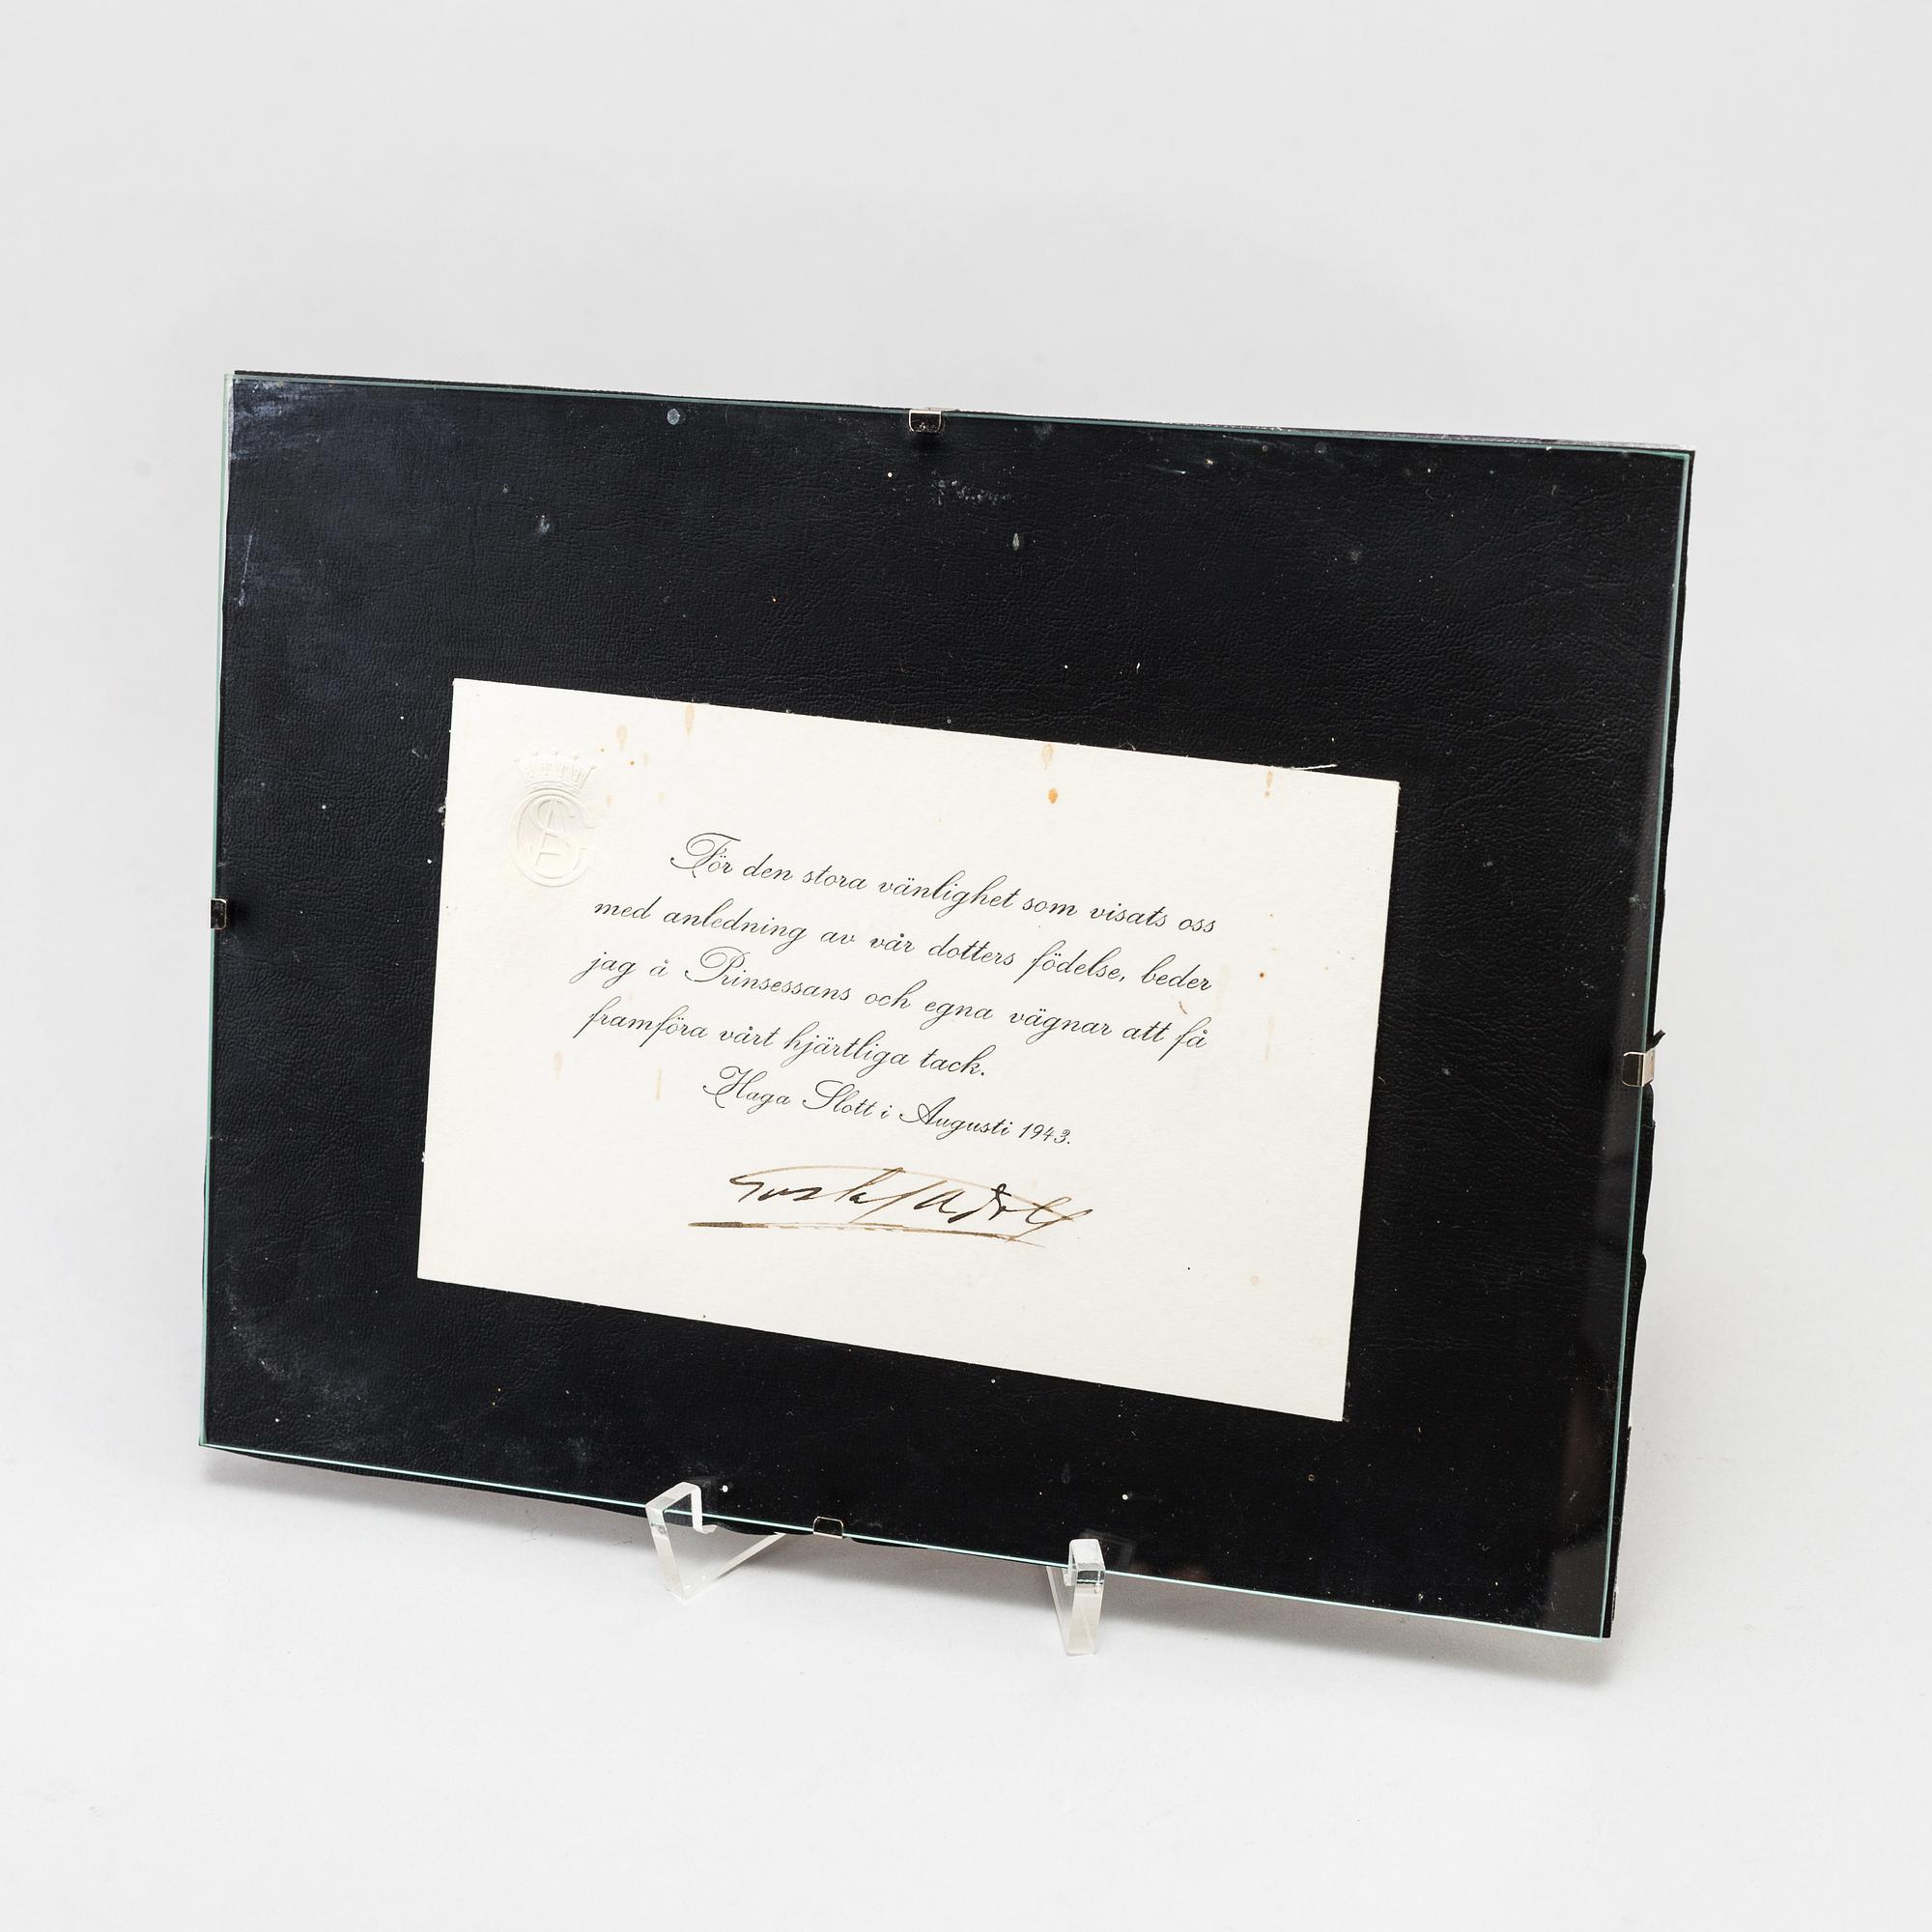 För den stora vänlighet som visats oss
med anledning av vår dotters födelse, beder
jag å Prinsessans och egna vägnar att få
framföra vårt hjärtliga tack.
Haga Slott i Augusti 1943.
Gustaf Adolf